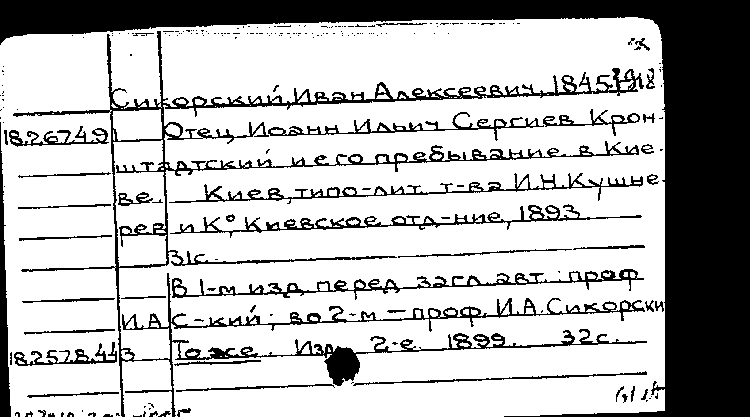 Сикорский, Иван Алексеевич, 1845-1918
18.267.4.91 Отец Иоанн Ильич Сергиев Крон-
штадтский и его пребывание в Кие-
ве. Киев, типо-лит. т-ва И.Н. Кушне-
рев и К°, Киевское отд-ние, 1893.
31с.
В 1-м изд. перед загл. авт.: проф.
И.А. С-кий; во 2-м — проф. И.А. Сикорски
18.257.8.443 То же. Изд. 2-е. 1899. 32с.